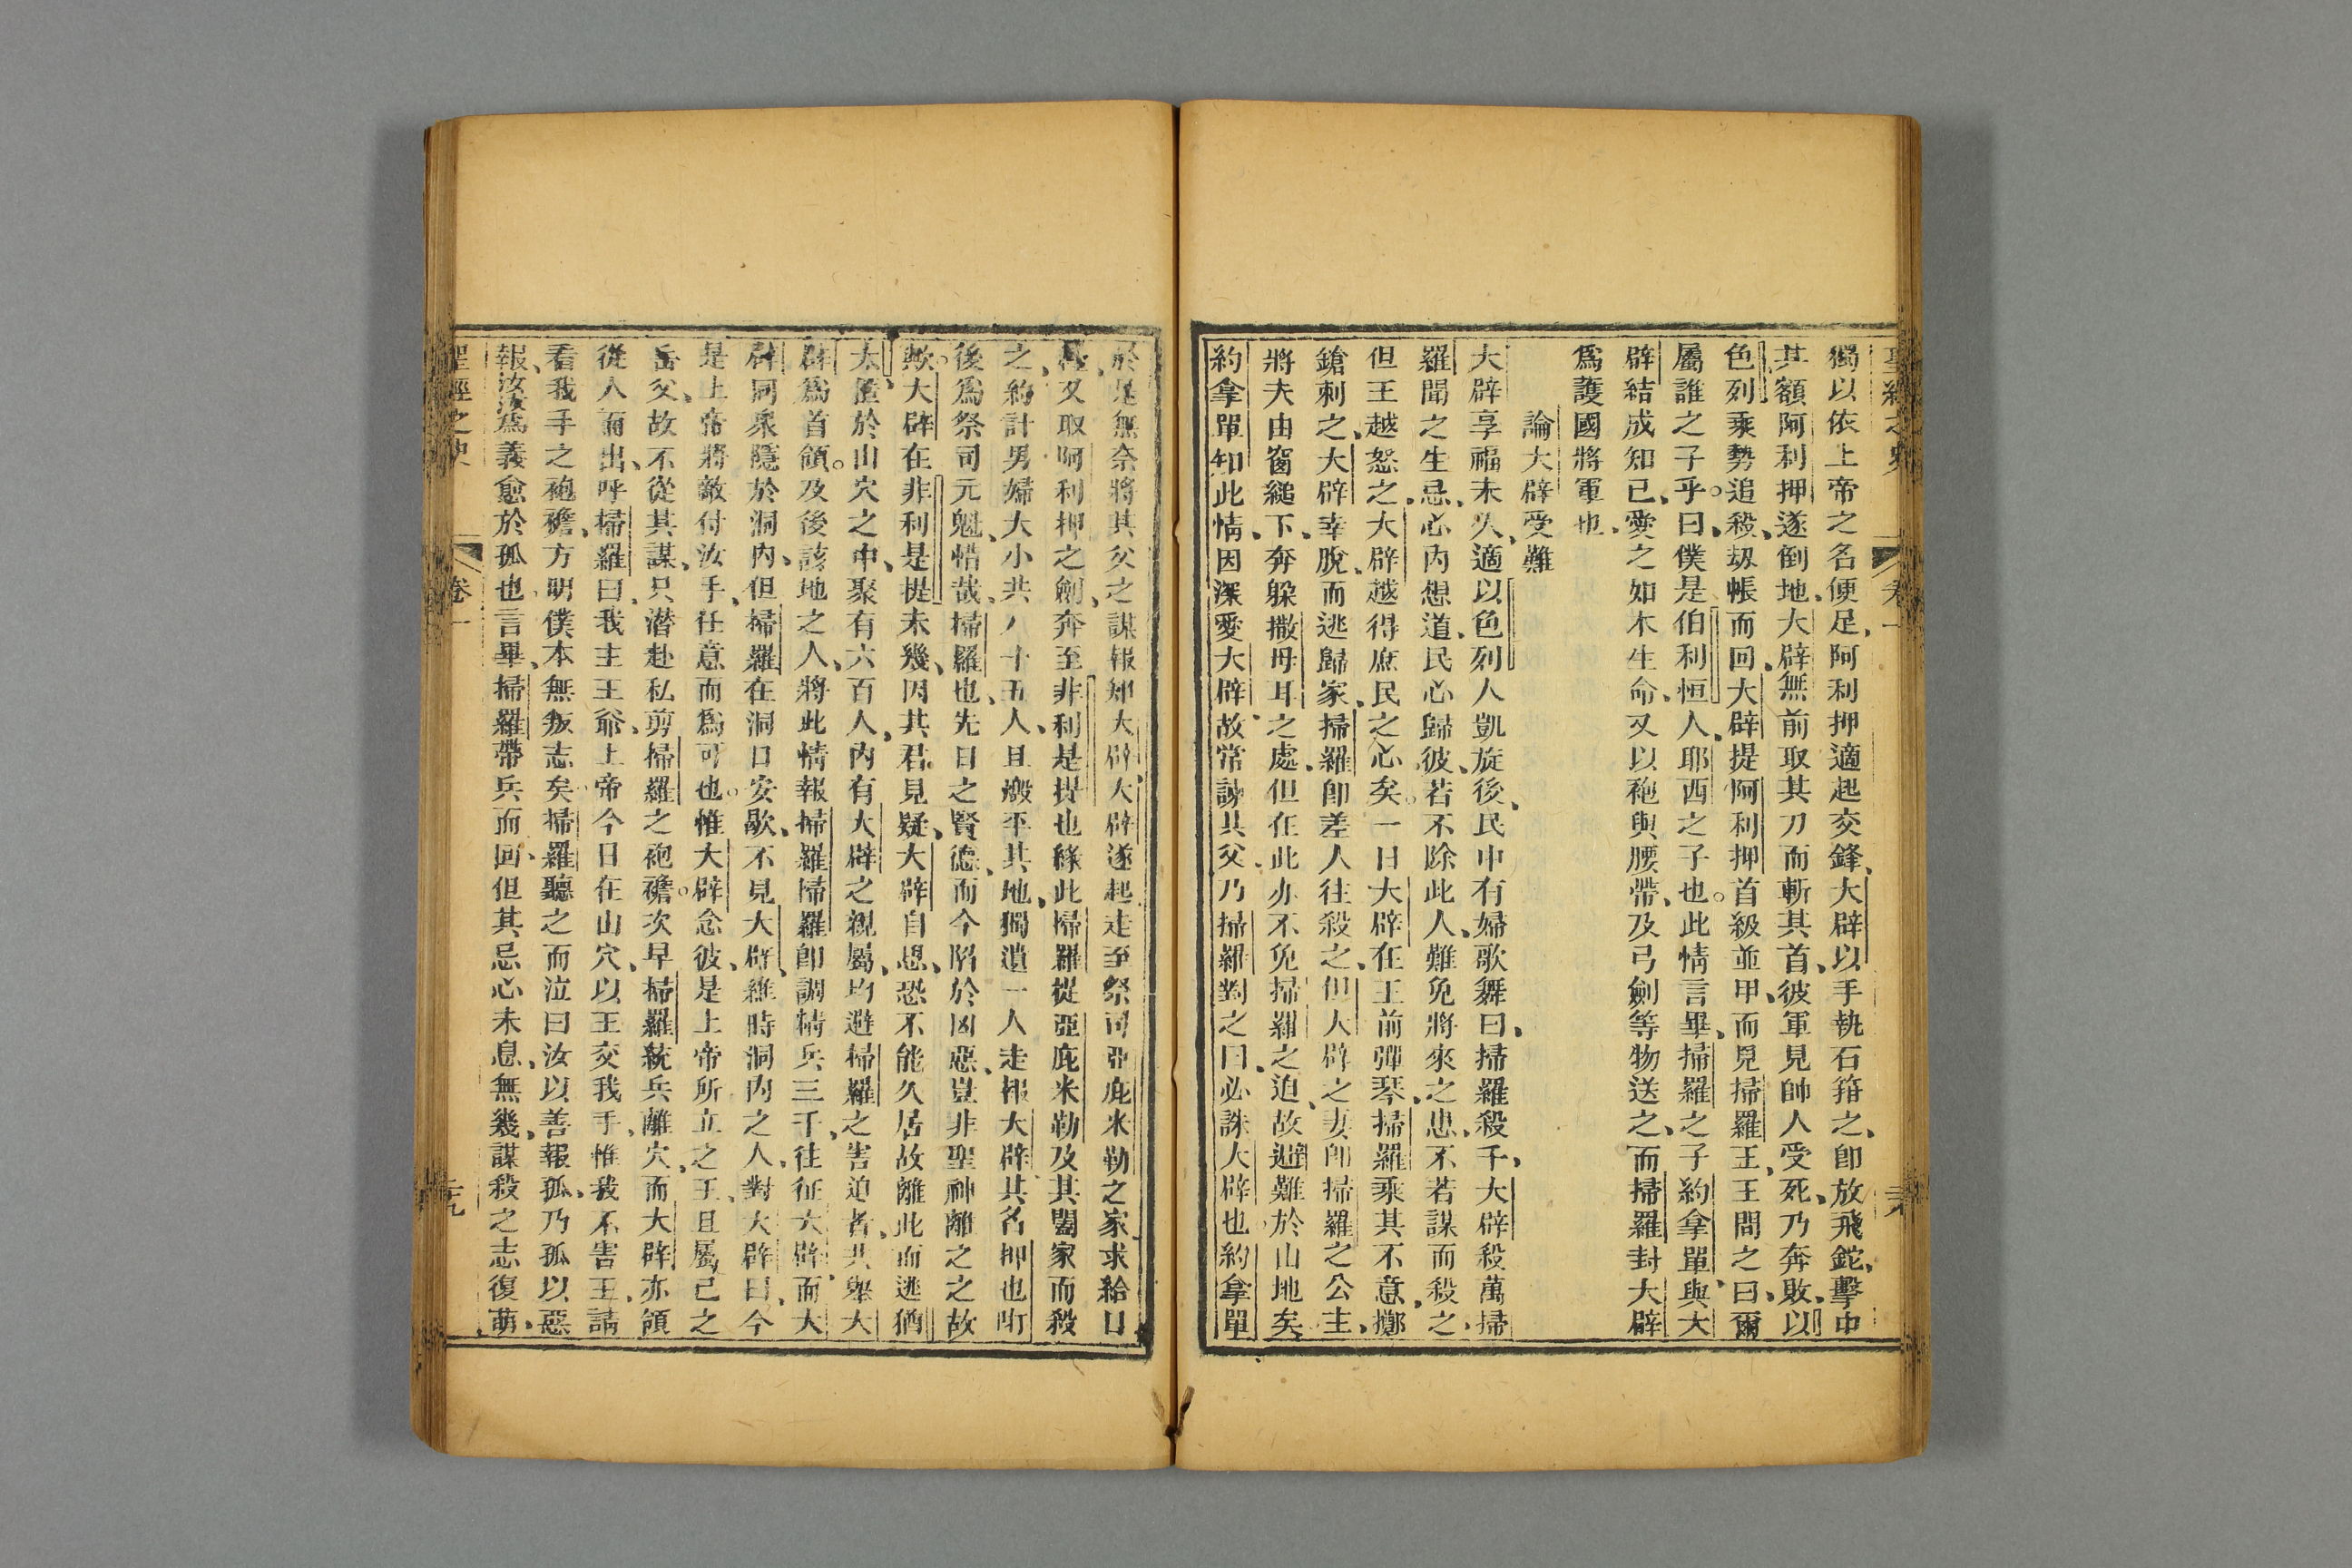 聖經之史 卷一
獨以依上帝之名便足、阿利押適起交鋒、大辟以手執石箝之、卽放飛鉈、擊中
其額阿利押遂倒地、大辟無前取其刀而斬其首、彼軍見帥人受死、乃奔敗、以
色列乘勢追殺、刼帳而回、大辟提阿利押首級並甲、而見掃羅王、王問之曰、爾
屬誰之子乎。曰、僕是伯利恒人、耶西之子也。此情言畢、掃羅之子約拿單、與大
辟結成知已、愛之如本生命、又以袍與腰帶、及弓劍等物送之、而掃羅封大辟
爲護國將軍也、
論大辟受難
大辟享福未久、適以色列人凱旋後、民中有婦歌舞曰、掃羅殺千、大辟殺萬、掃
羅聞之生忌、心內想道、民心歸彼、若不除此人、難免將來之患、不若謀而殺之、
但王越怒之、大辟越得庶民之心矣。一日大辟在王前彈琴、掃羅乘其不意、擲
鎗刺之、大辟幸脫、而逃歸家、掃羅卽差人往殺之、但大辟之妻卽掃羅之公主、
將夫由窗縋下、奔躱撒母耳之處、但在此亦不免掃羅之迫、故避難於山地矣、
約拿單知此情、因深愛大辟、故常諫其父、乃掃羅對之曰、必誅大辟也、約拿單
於是無奈將其父之謀報知大辟、大辟遂起走至祭司亞庇米勒之家、求給口
糧、又取阿利押之劍、奔至非利是提也、緣此掃羅從亞庇米勒及其闔家而殺
之、約計男婦大小共八十五人、且毀平其地、獨遺一人走報大辟、其名押也咑
後爲祭司元魁、惜哉、掃羅也、先日之賢德、而今陷於凶惡、豈非聖神離之之故
歟。大辟在非利是提未幾、因其君見疑、大辟自思、恐不能久居、故離此而逃猶
太、匿於山穴之中、聚有六百人、內有大辟之親屬、均避掃羅之害迫者、共舉大
辟爲首領。及後該地之人、將此情報掃羅、掃羅卽調精兵三千、往征大辟、而大
辟同衆隱於洞內、但掃羅在洞口安歇、不見大辟、維時洞內之人、對大辟曰、今
是上帝將敵付汝手、任意而爲可也。惟大辟念彼是上帝所立之王、且屬已之
岳父、故不從其謀、只潛赴私剪掃羅之袍襜。次早掃羅統兵離穴、而大辟亦領
從人而出、呼掃羅曰、我主王爺、上帝今日在山穴、以王交我手、惟我不害王、請
看我手之袍襜、方明僕本無叛志矣、掃羅聽之而泣曰、汝以善報孤、乃孤以惡
報汝、汝爲義愈於孤也、言畢、掃羅帶兵而回、但其忌心未息、無幾、謀殺之志復萌、
聖經之史 卷一 三九